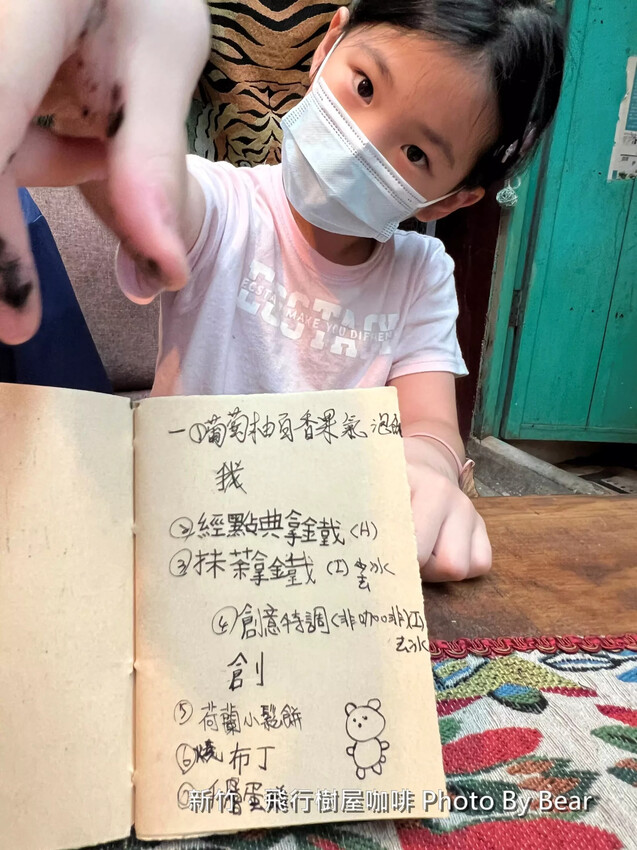 ECSTASY
ECSTA MAKE YOU DIFFEREN
一①葡萄柚百香果氣泡飲
我
②經點典拿鐵(H)
③抹茶拿鐵(I)去冰
④創意特調(非咖啡)(I)
去冰
創
⑤荷蘭小鬆餅
⑥燒布丁
新竹 飛行樹屋咖啡 Photo By Bear